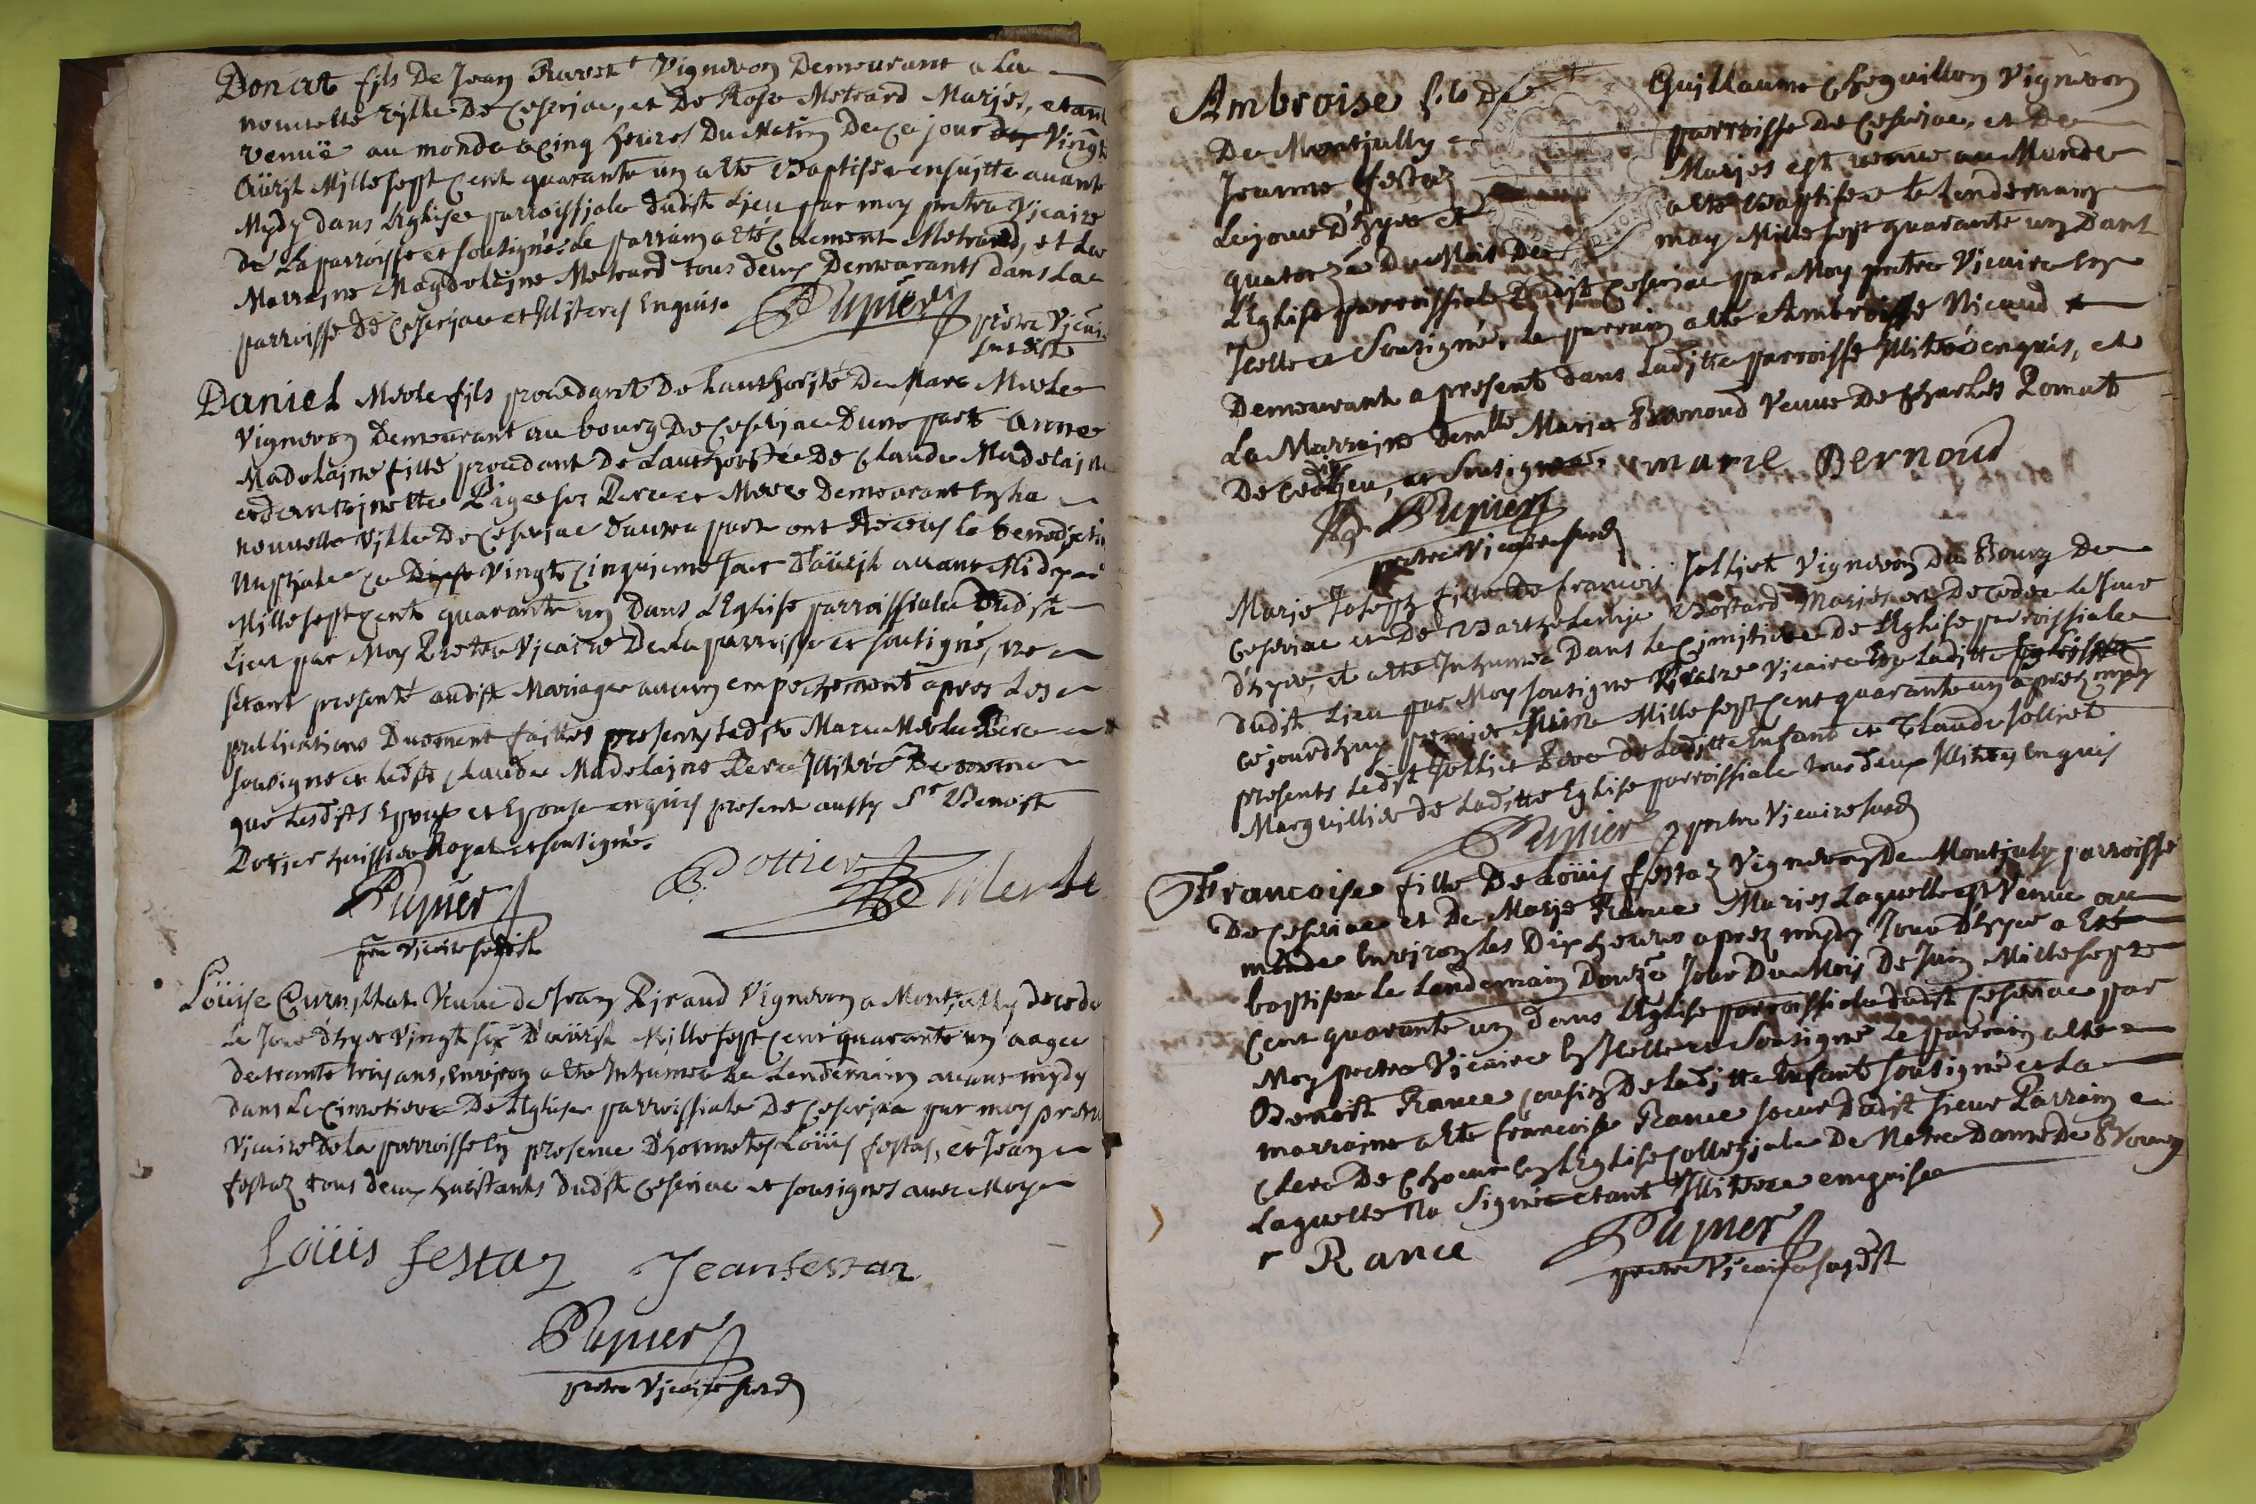 Donat fils De Jean Ravet Vigneron Demeurant a La
nouvelle ville De Ceserjac, et De Rose Metrard Marjés, etant
venuë au monde a cinq heures Du Matin De ce jour Vingt
Aüril Mille sept Cent quarante un a été Baptisé ensuitte avant
Mydy dans L'Eglise parroissjale dudist Ljeu par moy pretre Vjcaire
de La parroisse et soutigné, Le parrain a été Clement Metrard, et La
Marrajne Magdelejne Metrard tous deux Demeurants dans La
parroisse de Ceserjac et Enquis.
Pupier
pretre Vjcaire
Daniel Merle fils procedant De Lauthorjté De Marc Merle
Vigneron Demeurant au bourg De Ceserjac Dune part Anne
Madelajne fille procedant De Lauthorjtée De Claude Madelajne
Pages ses Pere et Mere Demeurant en La
nouvelle Ville De Ceserjac Dautre part ont Receus la benedjction
Nuptjale ce Vingt Cinqujeme Jour D'aüril avant Midy
Mille sept Cent quarante un Dans L'Eglise parroissiale Dudist
Ljeu par Moy Pretre Vjcaire De La parroisse et soutigné, ne
setant presenté audist Mariage aucun empechement apres Les
publications Duement faittes presents Ledist Marc Merle Pere
soutigné et Ledist Claude Madelajne Pere
que Lesdists Epoux et Epouse enquis present aussy Sr Benoist
Potjer huissier Royal et soutigné.
Pupier
Pottier
Merle
Vjcaire
Loüise Veuve de Jean Pjraud Vigneron a Montjully decedée
Le Jour d'hyer Vingt six D'aüril Mille sept Cent quarante un aagée
de trente trois ans, Environ a été Inhumée Le Lendemain avant mydy
dans Le Cimetiere De L'Eglise parroissiale De Ceserjac par moy pretre
Vjcaire De La parroisse En presence D'honnetes Loüis festas, et Jean
festaz tous deux habitants dudist Ceserjac et soutignes avec Moy
Loüis festaz
Jean festaz
Pupier
pretre Vjcaire
Ambroise fils de Guillaume Vigneron
De Montjully parroisse De Ceserjac, et De
Jeanne festaz Marjes est venu au Monde
Le jour d'hyer et a été Baptisé le Lendemain
quatorze Du Mois De may Mille sept quarante un Dans
L'Eglise parroissiale Dudist Ceserjac par Moy pretre Vjcaire En
Icelle et Soutigné, Le parrain a été Ambroise Nicaud
Demeurant a present dans Laditte parroisse Illitéré enquis, et
La Marraine Demlle Marie Veuve De Charles Pomat
De cedist Ljeu, et Soutignée.
marie Bernoud
Pupier
pretre Vjcaire
Marje Joseph fille De francois Jolljet Vigneron Du Bourg De
Ceserjac et De Barthelemje Marjes est Decedée Le Jour
d'hyer, et a été Inhumée Dans Le Cimitiere De L'Eglise parroissiale
dudist Lieu par Moy soutigné Pretre Vjcaire En Laditte Eglise
cejourdhuy premier Juin Mille sept Cent quarante un apres mydy
presents Ledist Jolljet Pere de Laditte Enfant et Claude Jolljet
Marguillier de Laditte Eglise parroissiale tous deux Enquis
Pupier pretre Vjcaire
Francoise fille De Loüis festaz Vigneron De Montjuly parroisse
De Ceserjac et De Marje Rance Marjes Laquelle est Venue au
monde Environ Les Dix heures aprez mydy Jour d'hyer a été
baptisée Le Lendemain Douze Jour Du Mois De Juin Mille sept
Cent quarante un dans L'Eglise parroissiale dudist Ceserjac par
Moy pretre Vjcaire En Icelle et Soutigné Le parrain a été
Benoist Rance Cousin De Laditte Enfant soutigné et La
marraine a été francoise Rance soeur Dudist sieur Parrain
Clerc De Choeur En L'Eglise Collegjale De Notre Dame De Bourg
Laquelle Na Signé etant Illiterée enquise
Rance
Pupier
pretre Vjcaire